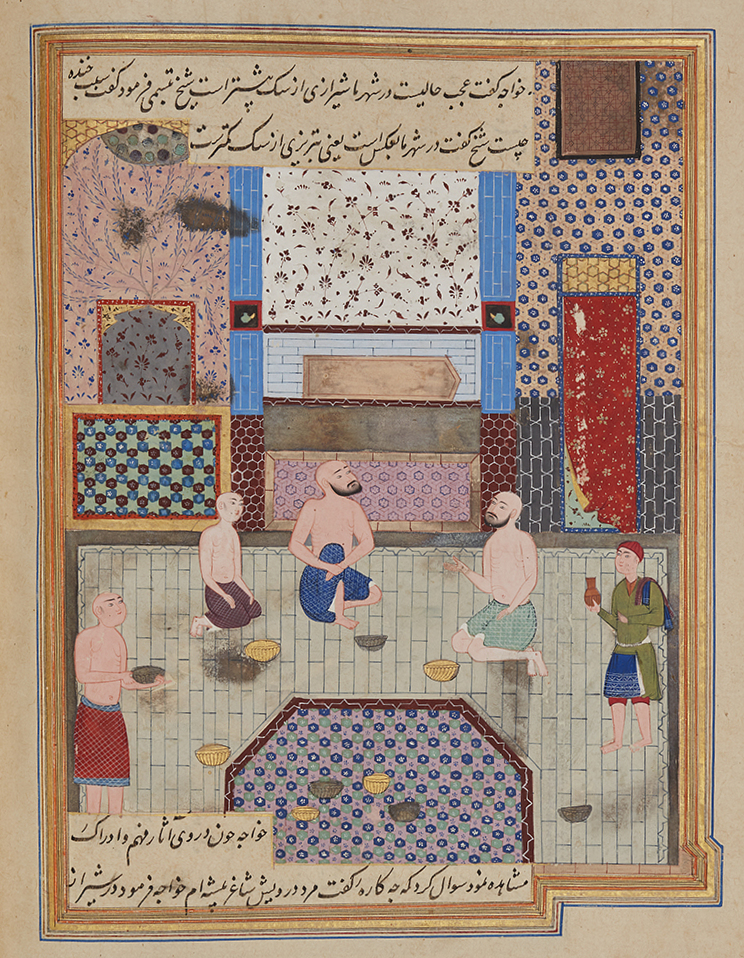 خواجه گفت عجب حالیست در شهر ما شیرازی از سگ بیشتر است شیخ تبسمی فرمود گفت سبب خنده
چیست شیخ گفت در شهر ما بعکس است یعنی تبریزی از سگ کمتر است
خواجه چون در وی آثار فهم و ادراک
مشاهده نمود سوال کرد که چه کاره گفت مرد درویش شاعر پیشه ام خواجه فرمود در شیراز